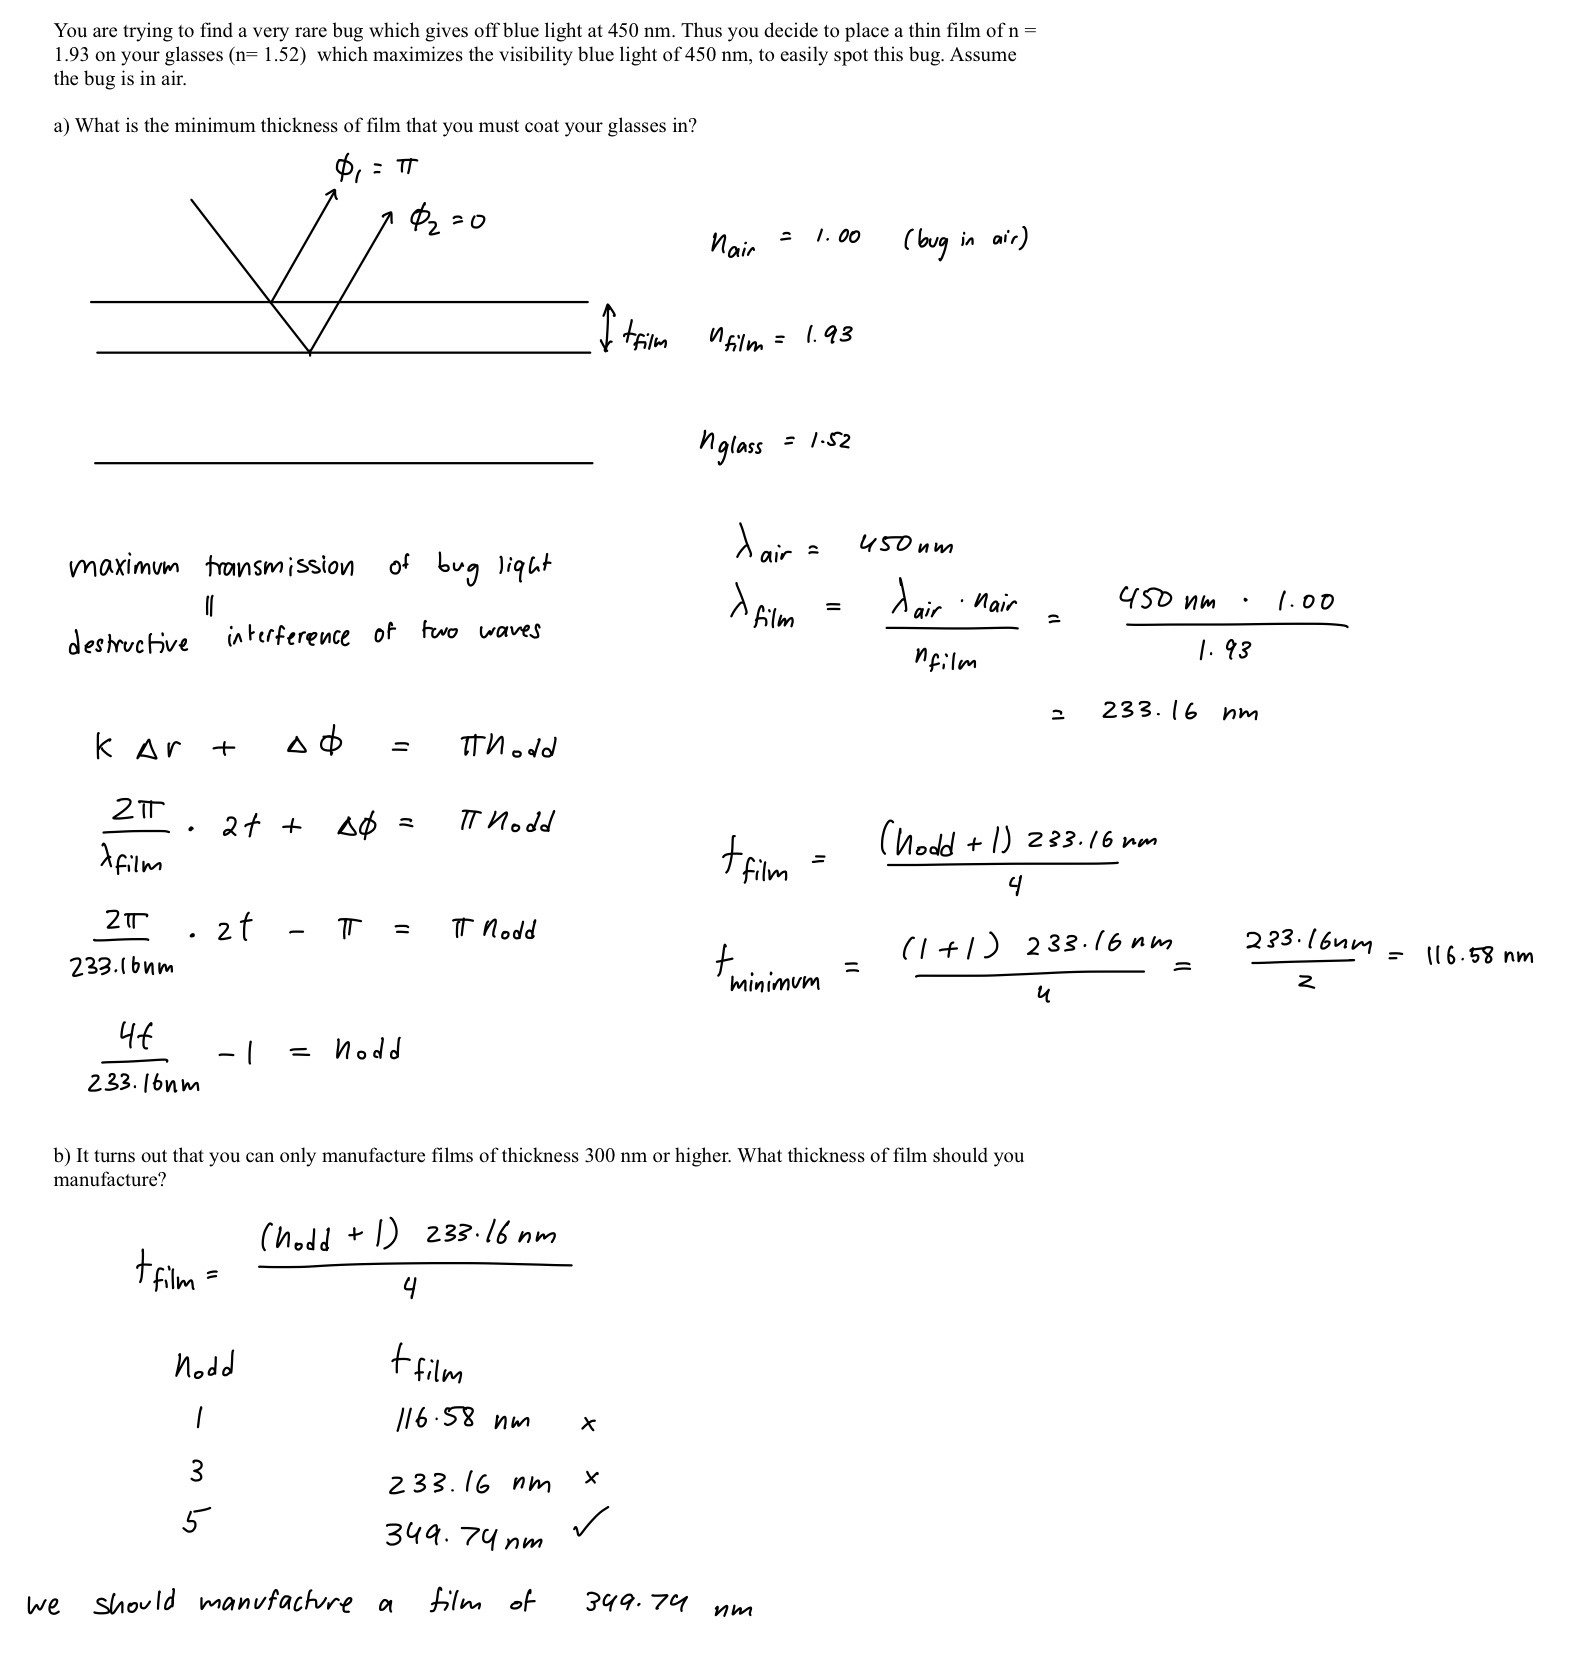 You are trying to find a very rare bug which gives off blue light at 450 nm. Thus you decide to place a thin film of n =
1.93 on your glasses (n= 1.52)  which maximizes the visibility blue light of 450 nm, to easily spot this bug. Assume
the bug is in air.
a) What is the minimum thickness of film that you must coat your glasses in?
ϕ₁ = π
ϕ₂ = 0
n air = 1.00 (bug in air)
t film
n film = 1.93
n glass = 1.52
maximum transmission of bug light
||
destructive interference of two waves
λ air = 450 nm
λ film = λ air · n air / n film = 450 nm · 1.00 / 1.93
= 233.16 nm
k Δr + Δϕ = π n odd
2π / λ film · 2t + Δϕ = π n odd
2π / 233.16nm · 2t − π = π n odd
4t / 233.16nm − 1 = n odd
t film = (n odd + 1) 233.16 nm / 4
t minimum = (1+1) 233.16 nm / 4 = 233.16nm / 2 = 116.58 nm
b) It turns out that you can only manufacture films of thickness 300 nm or higher. What thickness of film should you
manufacture?
t film = (n odd + 1) 233.16 nm / 4
n odd t film
1 116.58 nm ×
3 233.16 nm ×
5 349.74 nm ✓
we should manufacture a film of 349.74 nm